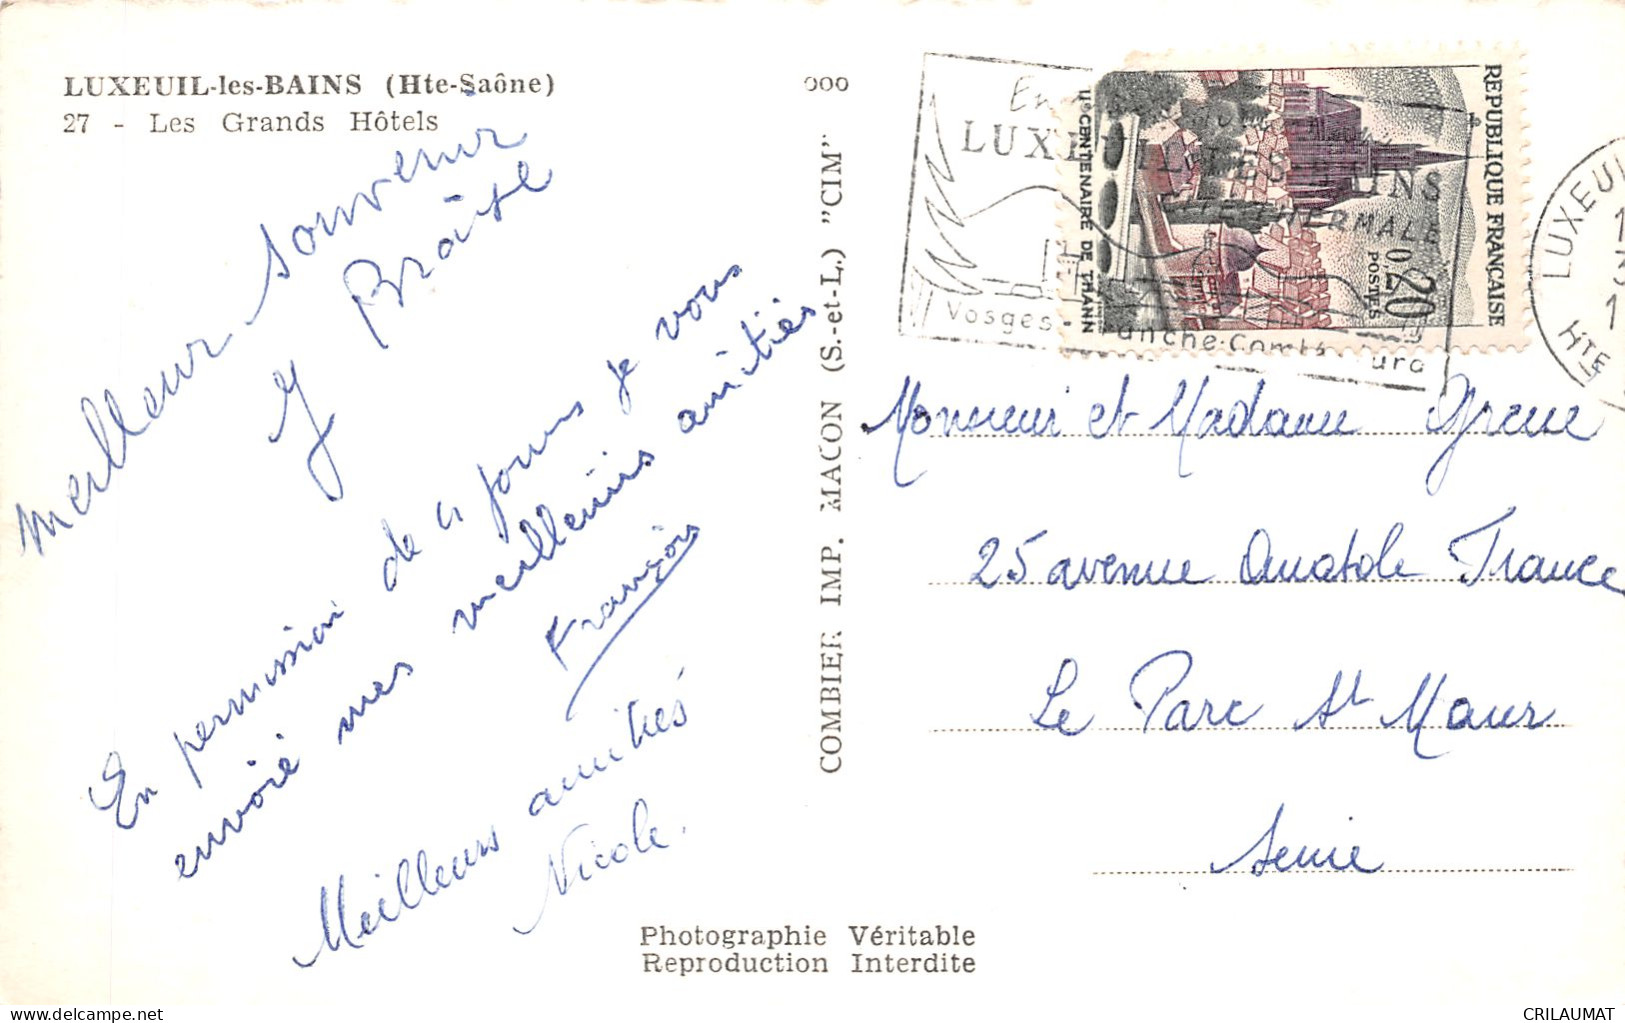 LUXEUIL-les-BAINS (Hte-Saône)
27 - Les Grands Hôtels
Meilleur souvenir
Y Braite
En permission de 4 jours je vous
envoie mes meilleurs amitiés
François
Meilleurs amitiés
Nicole.
COMBIER IMP. MACON (S.-et-L.) "CIM"
REPUBLIQUE FRANÇAISE
0,20
POSTES
CENTENAIRE DE THANN
En
LUXEUIL LES BAINS
THERMALE
Vosges - Franche-Comté Jura
LUXEUIL
HTE
Monsieur et Madame Greue
25 avenue Anatole France
Le Parc St Maur
Seine
Photographie Véritable
Reproduction Interdite
delcampe.net
CRILAUMAT